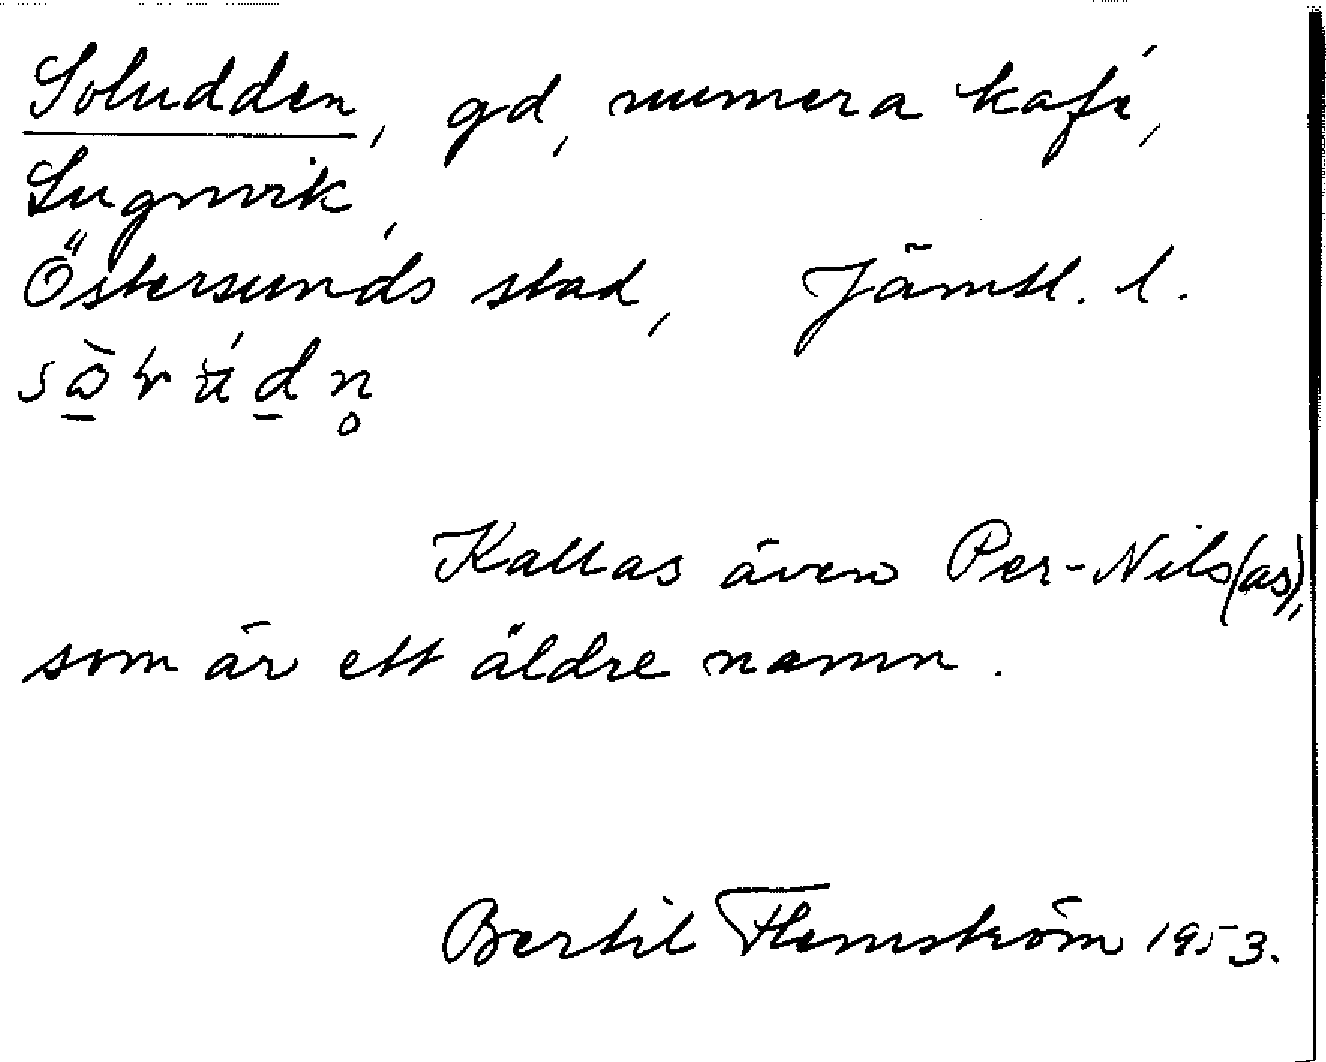 Soludden, gd, numera kafé,
Lugnvik,
Östersunds stad, Jämtl. l.
Kallas även Per-Nils(as),
som är ett äldre namn.
Bertil Flemström 1953.